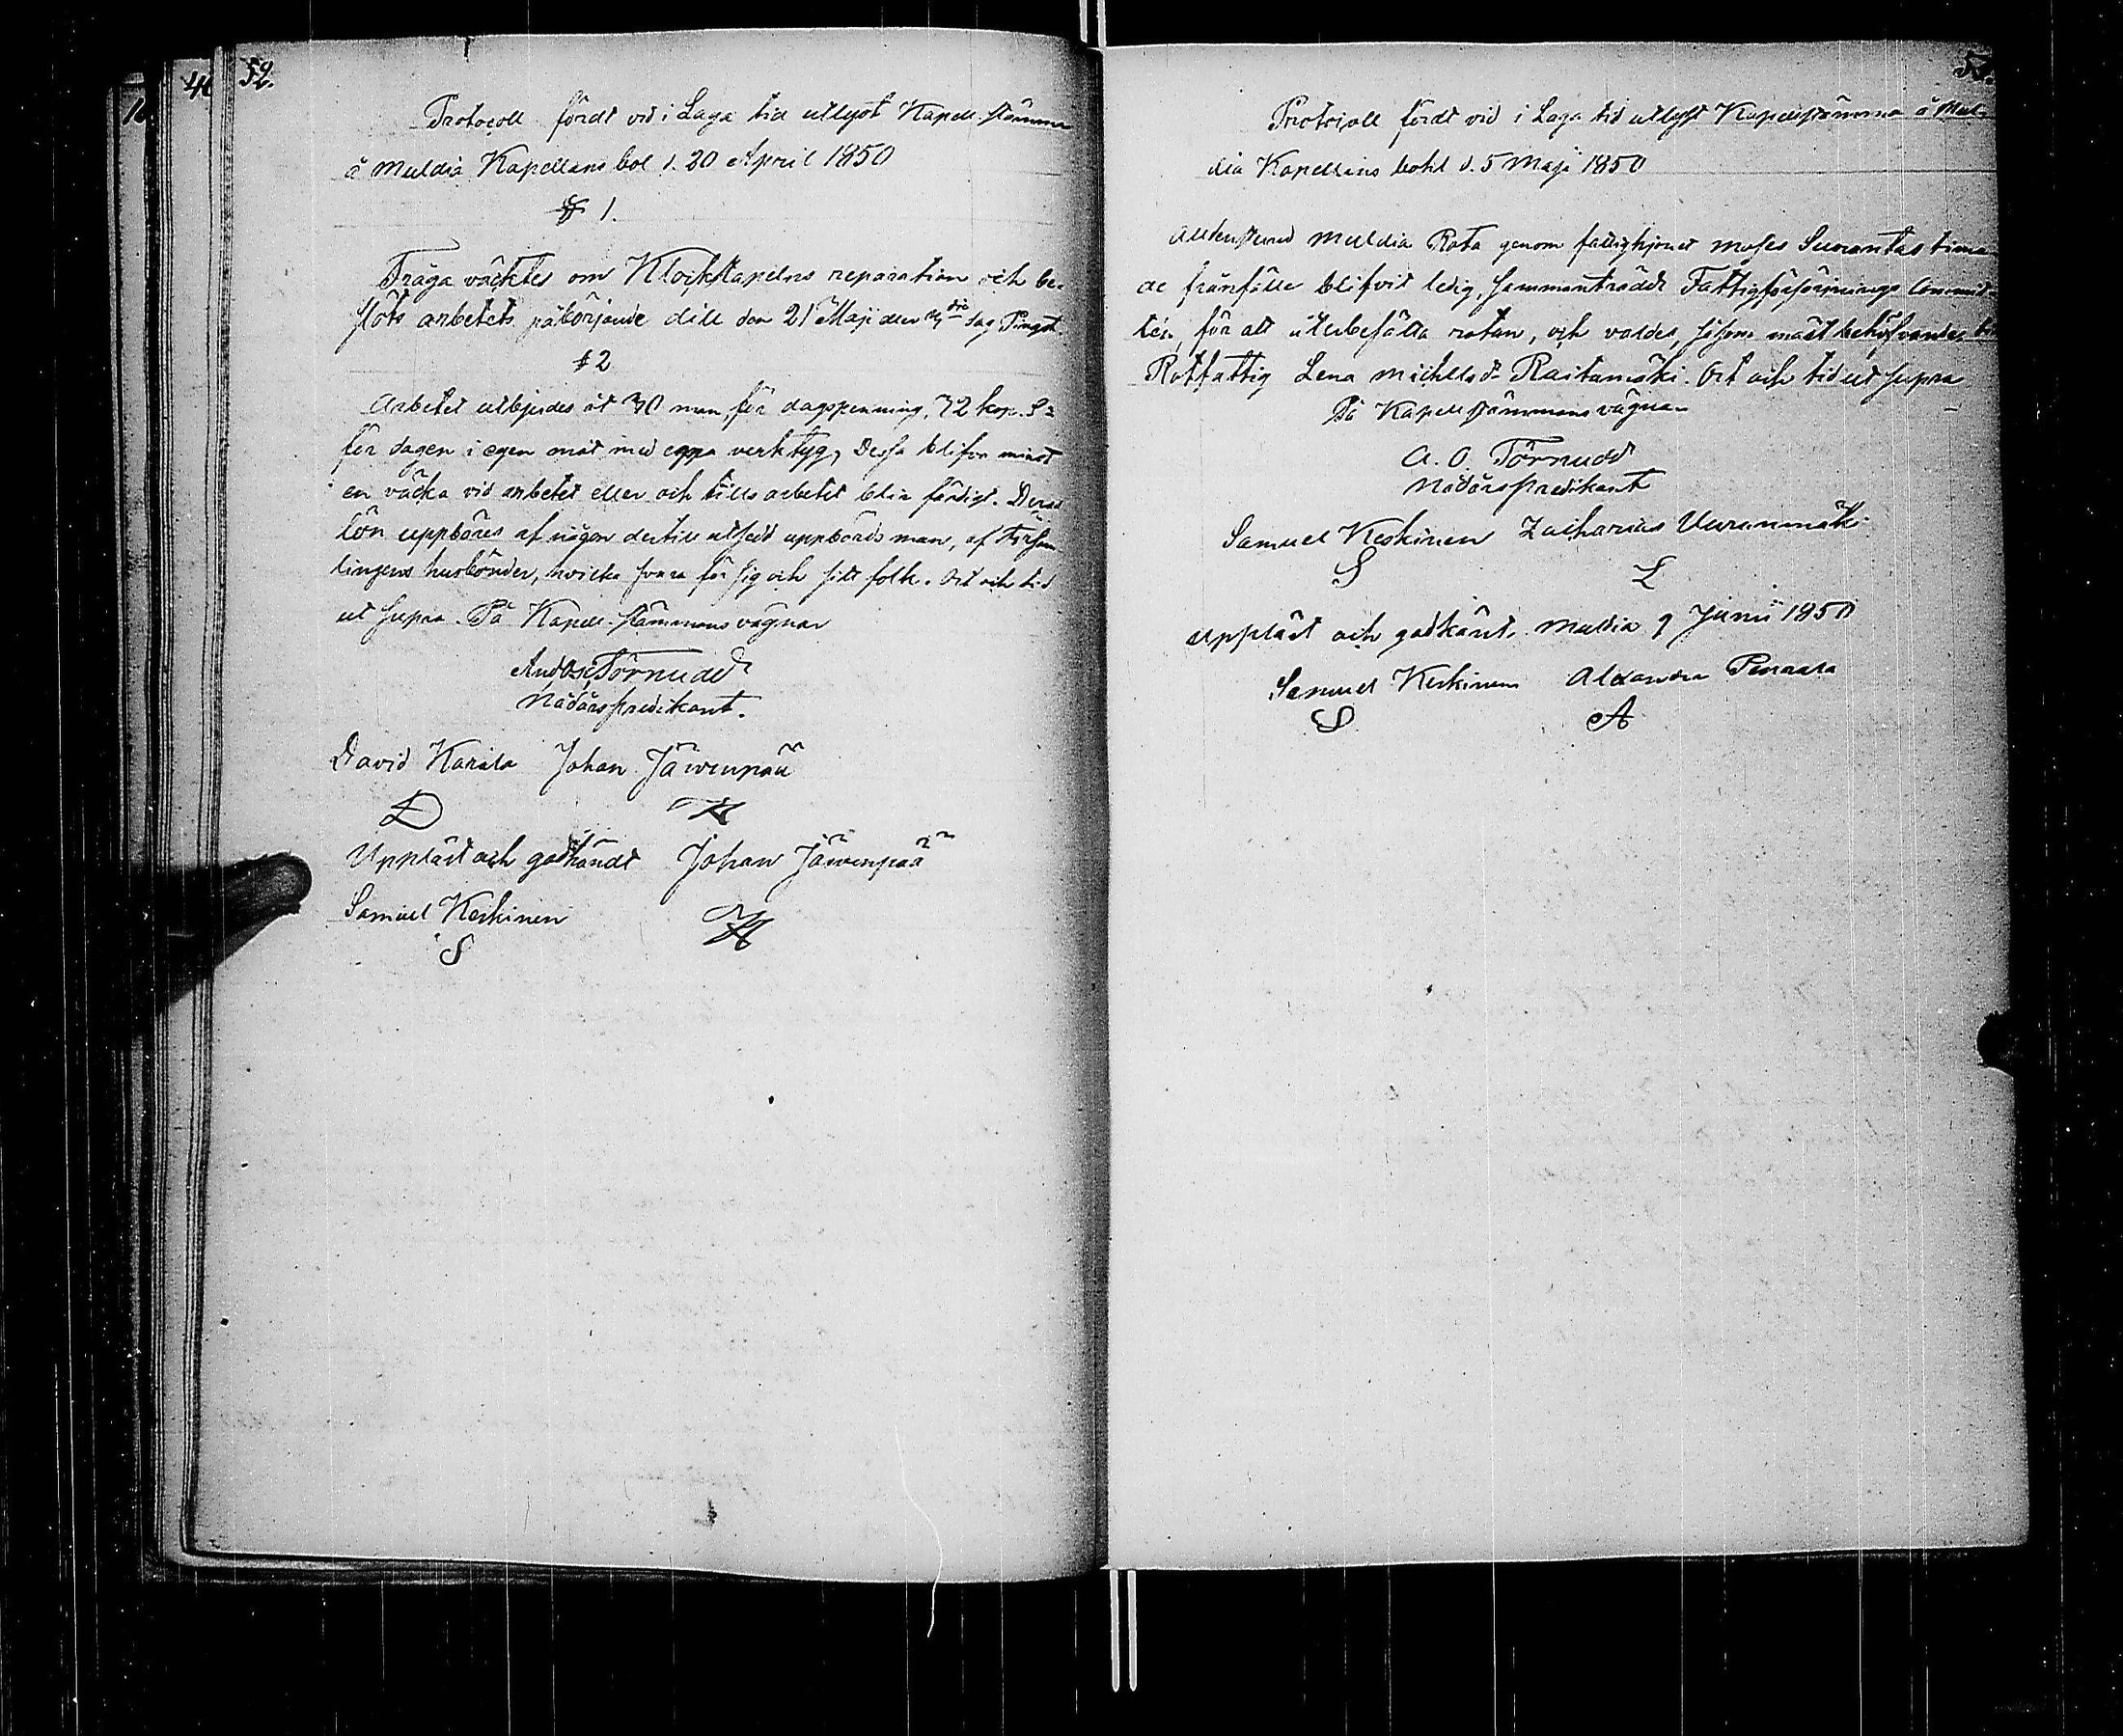 52.
Protocoll fördt vid i Laga tid utlyst Kapell-stämma
å Muldia Kapellans bol d. 20 April 1850
§ 1.
Fråga väcktes om Klockstapelns reparation och be-
slöts arbetets påbörjande till den 21 Maji eller 3dje dag Pingst.
§ 2
Arbetet utbjudes åt 30 man, för dagspenning, 32 kop. S:
för dagen i egen mat med egga verktyg, Dessa blifva minst
en väcka vid arbetet eller och tills arbetet blir färdigt. Deras
lön uppbäres af någon dertill utsedd uppbördsman, af Försam
lingens husbönder, hvilka svara för sig och sitt folk. Ort och tid
ut supra. På Kapell-stämmans vägnar
And. Os. Törnudd
Nådårspredikant.
David Karala Johan Järvenpää
D
Uppläst och godkändt Johan Järvenpää
Samuel Keskinen
S
53.
Protocoll fördt vid i Laga tid utlyst Kapellstämma å Mul-
dia Kapellans bohl d. 5 Maji 1850
Alldenstund Muldia Rota genom fattighjonet Moses Suurantas tima-
de frånfälle blifvit ledig, sammanträdde Fattigförsörjnings Commit-
tén, för att återbesätta rotan, och valdes, såsom mäst behöfvande, till
Rotfattig Lena Michelsdr Raitamäki. Ort och tid ut supra
På Kapellstämmans vägnar
A. O. Törnudd
Nådårspredikant
Samuel Keskinen Zacharias Vuorenmäki
S Z
Uppläst och godkänt. Muldia 9 Junii 1850
Samuel Keskinen Alexander Penaala
S A